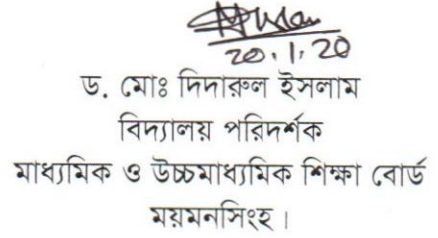 20.1.20
ড. মোঃ দিদারুল ইসলাম
বিদ্যালয় পরিদর্শক
মাধ্যমিক ও উচ্চমাধ্যমিক শিক্ষা বোর্ড
ময়মনসিংহ।